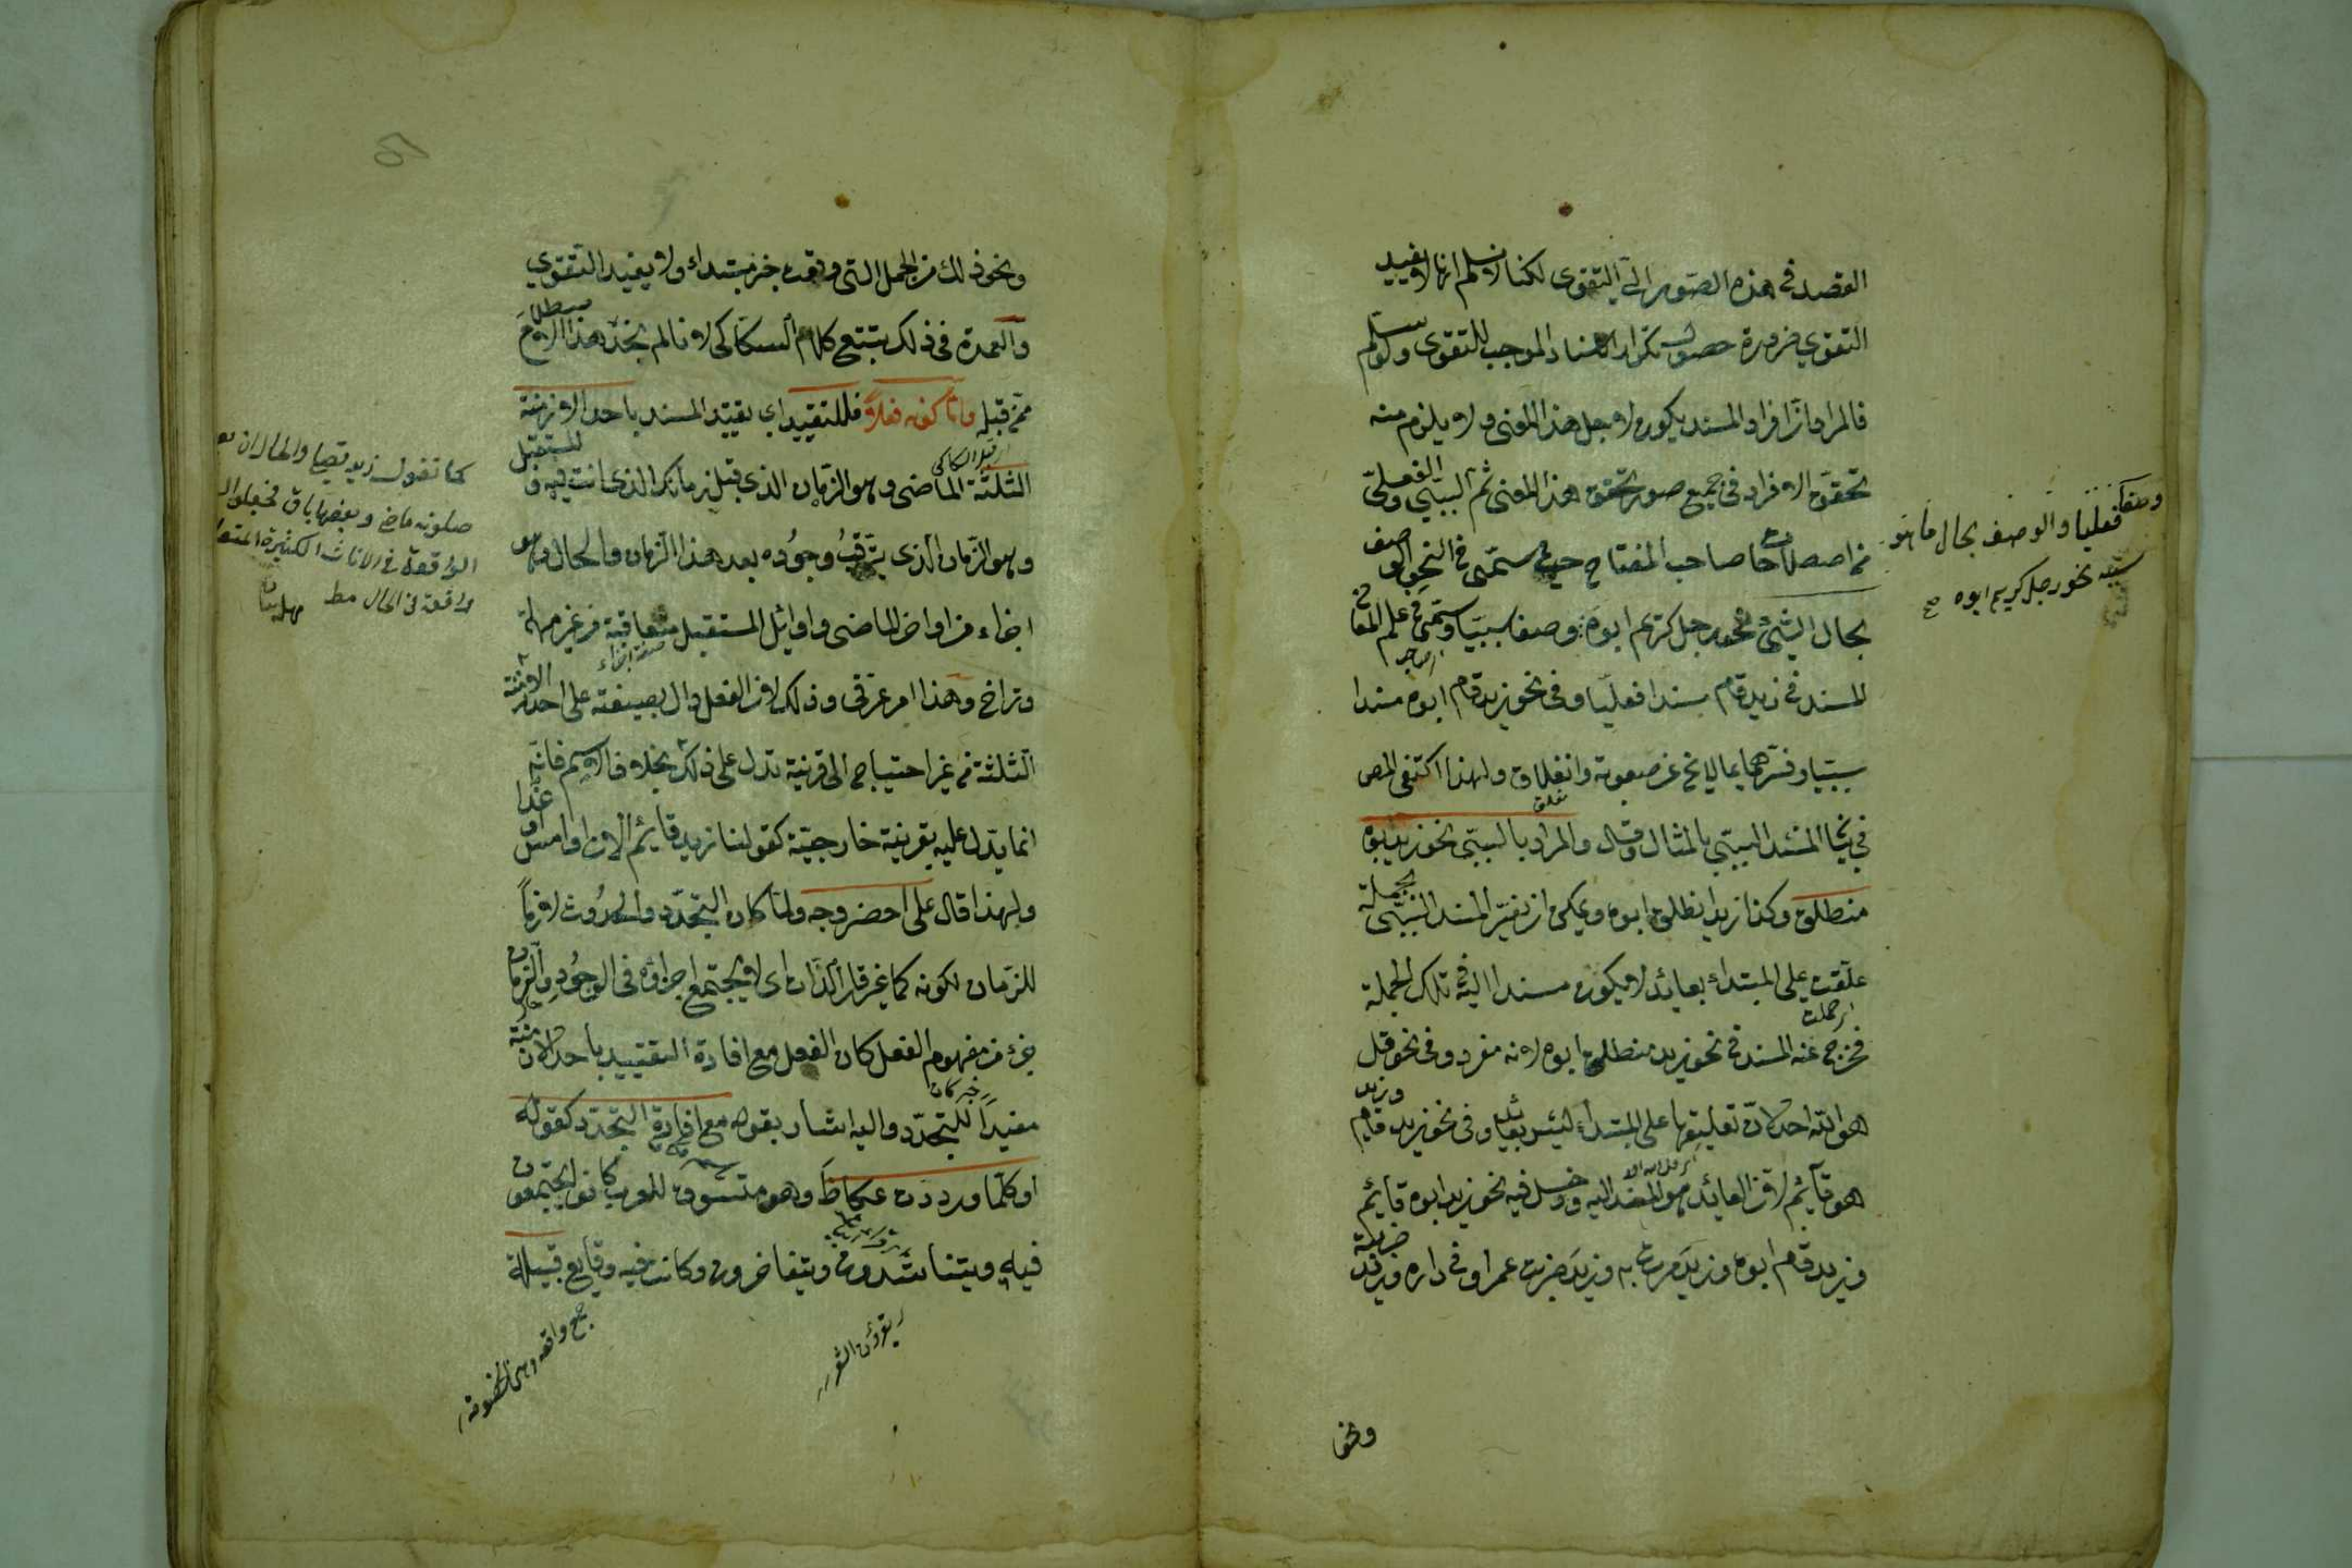 القصد في هذه الصور الى التقوى لكنا لا نسلم انها لا يفيد
التقوي ضرورة حصول تكرار الاسناد الموجب للتقوى ولو سلم
فالمراد ان افراد المسند يكون لاجل هذا المعنى ولا يلزم منه
تحقق الافراد في جميع صور تحقق هذا المعنى ثم السببي والفعلي
من اصطلاحات صاحب المفتاح حيث سمى في النحو الوصف
بحال الشيء نحو رجل كريم ابوه وصفا سببيا وسمى في علم المعاني
المسند في زيد قام مسندا فعليا وفي نحو زيد قام ابوه مسندا
سببيا وفسرهما بما لا يخ عن صعوبة وانغلاق ولهذا اكتفى المص
في بيان المسند السببي بالمثال وقال والمراد بالسببي نحو زيد ابوه
منطلق وكذا زيد انطلق ابوه ويمكن ان يفسر المسند السببي بجملة
علقت على المبتداء بعائد لا يكون مسندا اليه في تلك الجملة
فخرج عنه المسند في نحو زيد منطلق ابوه لانه مفرد وفي نحو قل
هو الله احد لان تعليقها على المبتداء ليس بعائد وفي نحو زيد قام وزيد
هو قائم لان العائد هو المسند اليه ودخل فيه نحو زيد ابوه قائم
وزيد قام ابوه وزيد مررت به وزيد ضربت عمرا في داره وزيد ضربته
ونحو
وصفا فعليا والوصف بحال ما هو
سببه نحو رجل كريم ابوه صح
ونحو ذلك من الجمل التي وقعت خبر مبتداء ولا يفيد التقوي
والعمدة في ذلك تتبع كلام السكاكي لانا لم نجد هذا الاصطلاح
ممن قبله واما كونه فعلا فللتقييد اي تقييد المسند باحد الازمنة
الثلثة الماضي وهو الزمان الذي قبل زمانك الذي انت فيه والمستقبل
وهو الزمان الذي يترقب وجوده بعد هذا الزمان والحال وهو
اجزاء من اواخر الماضي واوائل المستقبل متعاقبة من غير مهلة
وتراخ وهذا امر عرفي وذلك لان الفعل دال بصيغته على احد الازمنة
الثلثة من غير احتياج الى قرينة تدل على ذلك بخلاف الاسم فانه
انما يدل عليه بقرينة خارجية كقولنا زيد قائم الان او امس او غدا
ولهذا قال على اخصر وجه ولما كان التجدد والحدوث لازما
للزمان لكونه كما غير قار الذات اى لا يجتمع اجزاؤه في الوجود والزمان
جزء من مفهوم الفعل كان الفعل مع افادة التقييد باحد الازمنة
خبر كان
مفيدا للتجدد واليه اشار بقوله مع افادة التجدد كقوله
او كلما وردت عكاظ وهو متسوق للعرب كانوا يجتمعون
فيه ويتناشدون ويتفاخرون وكانت فيه وقايع قبيلة
كما تقول زيد يصلي والحال ان بعض
صلوته ماض وبعضها باق فجعلوا
الواقعة في الآنات الكثيرة المتعاقبة
واقعة في الحال مط